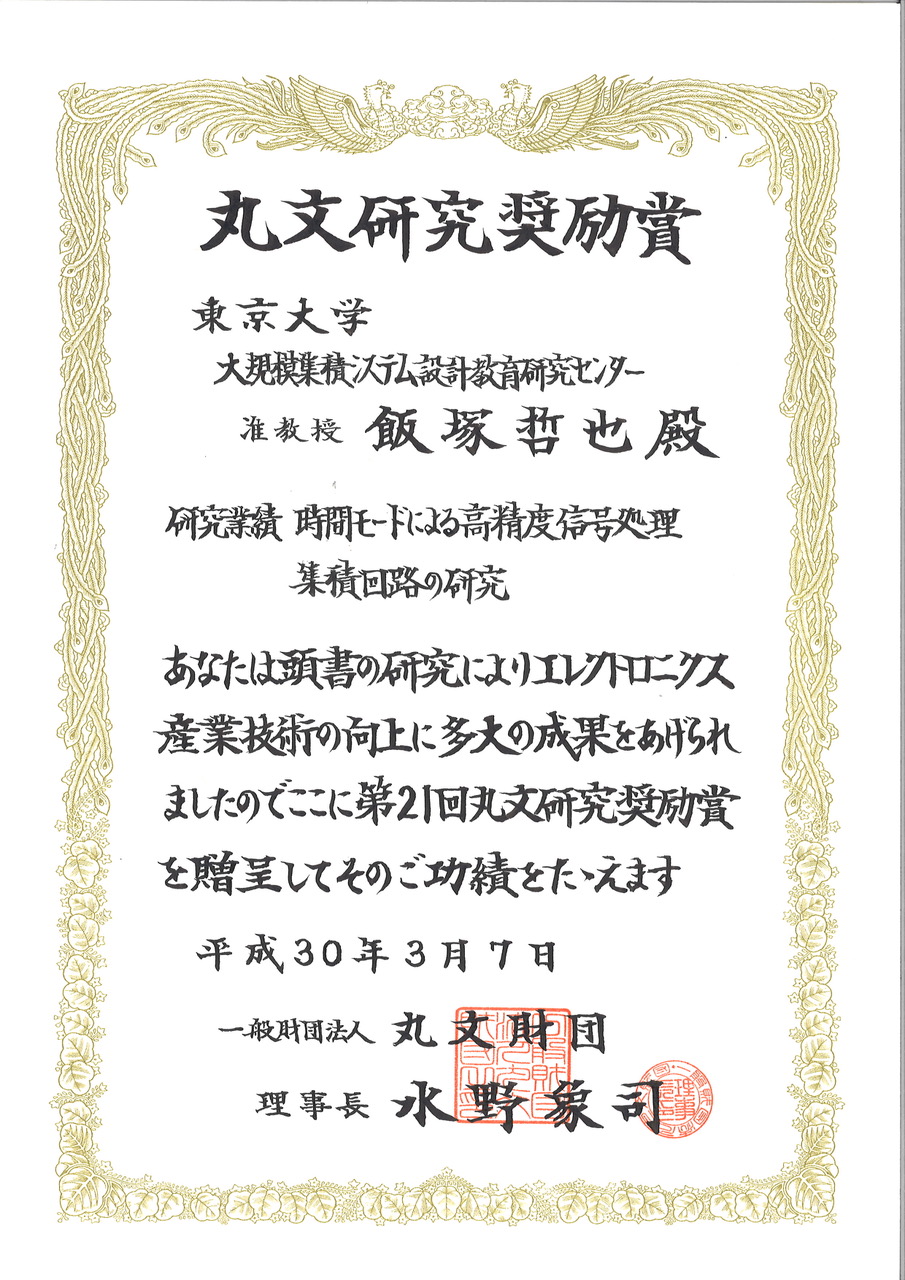 丸文研究奨励賞
東京大学
大規模集積システム設計教育研究センター
准教授 飯塚哲也殿
研究業績 時間モードによる高精度信号処理
集積回路の研究
あなたは頭書の研究によりエレクトロニクス
産業技術の向上に多大の成果をあげられ
ましたのでここに第21回丸文研究奨励賞
を贈呈してそのご功績をたゝえます
平成30年3月7日
一般財団法人 丸文財団
理事長 水野象司